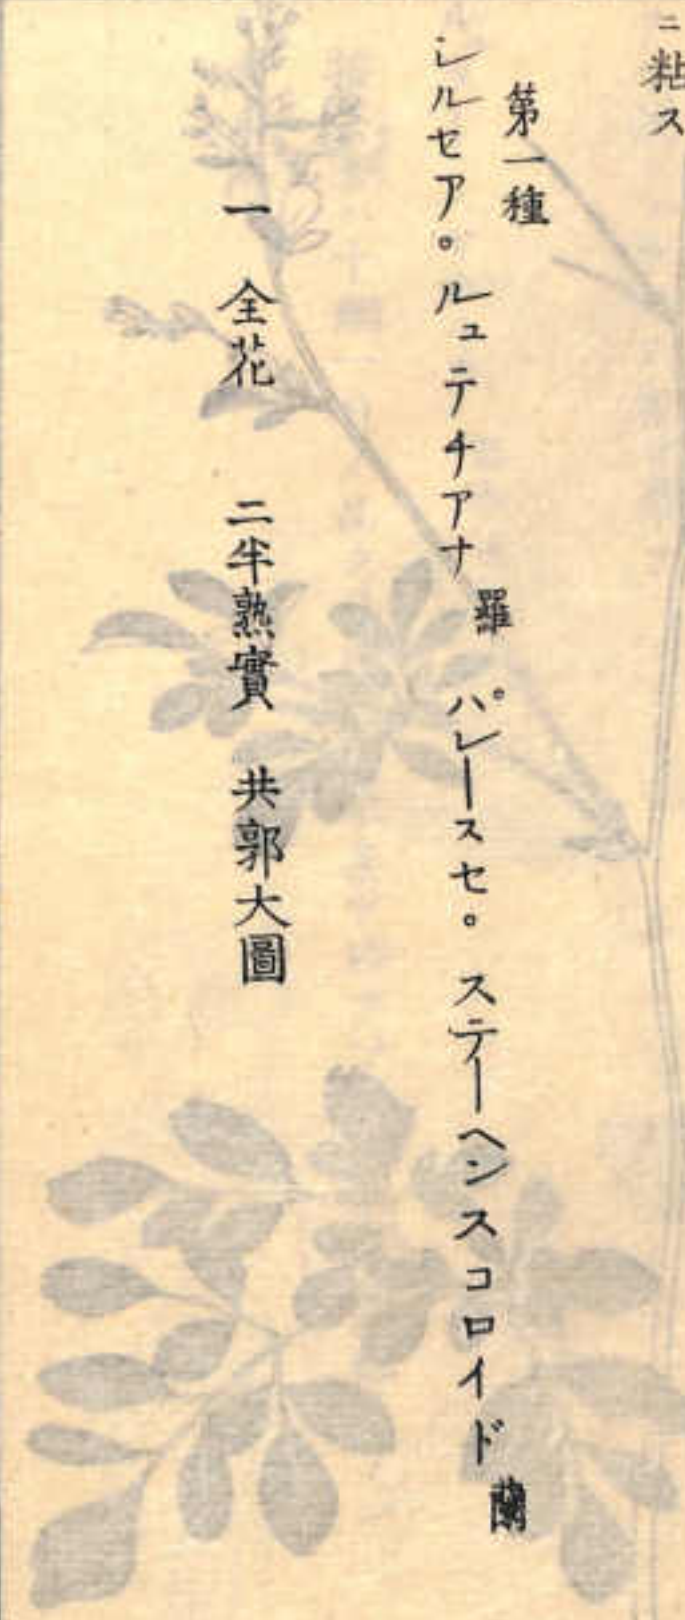 ニ粘ス
第一種
シルセア。ルュテチアナ 羅 パレースセ。ステーヘンスコロイド 蘭
一 全花 二半熟實 共郭大圖